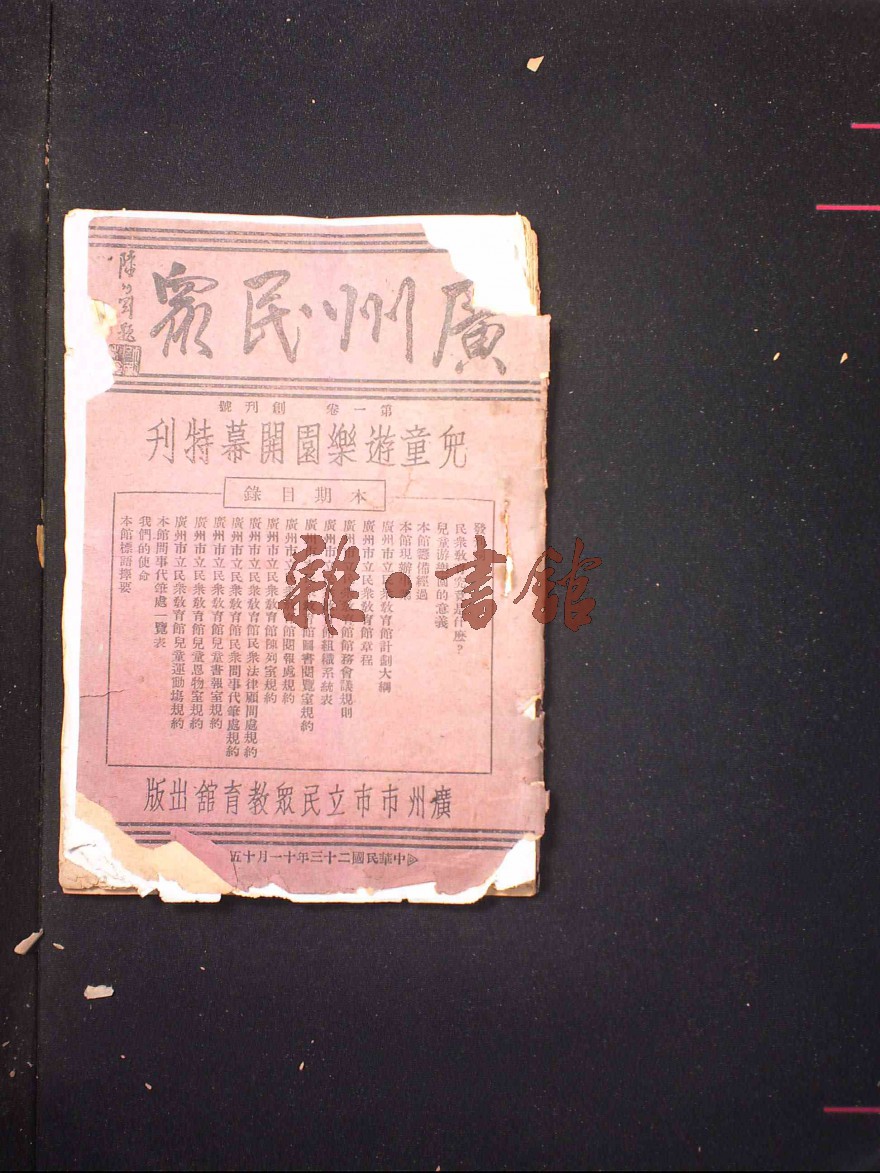 廣州民眾
陸幼剛題
第一卷 創刊號
兒童遊樂園開幕特刊
本期目錄
發
民衆教育究竟是什麽?
兒童游樂園的意義
本館籌備經過
本館現辦
廣州市立民衆教育館計劃大綱
廣州市立民衆教育館章程
廣州市立民衆教育館館務會議規則
廣州市立民衆教育館組織系統表
廣州市立民衆教育館圖書閱覽室規約
廣州市立民衆教育館閱報處規約
廣州市立民衆教育館陳列室規約
廣州市立民衆教育館民衆法律顧問處規約
廣州市立民衆教育館民衆問事代筆處規約
廣州市立民衆教育館兒童書報室規約
廣州市立民衆教育館兒童恩物室規約
廣州市立民衆教育館兒童運動塲規約
本館問事代筆處一覽表
我們的使命
本館標語擇要
廣州市市立民眾教育舘出版
中華民國二十三年十一月十五
雜·書館